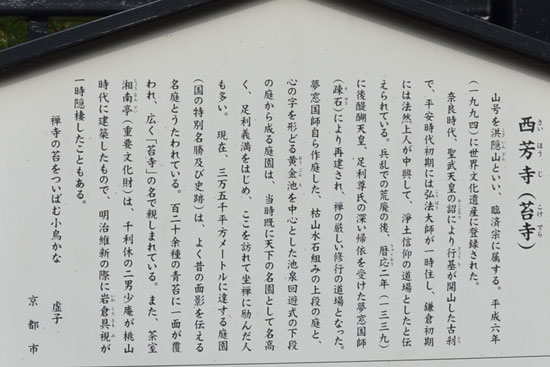 西芳寺（苔寺）
さいほうじ こけでら
山号を洪隠山といい、臨済宗に属する。平成六年
（一九九四）に世界文化遺産に登録された。
奈良時代、聖武天皇の詔により行基が開山した古刹
で、平安時代初期には弘法大師が一時住し、鎌倉初期
には法然上人が中興して、浄土信仰の道場としたと伝
えられている。兵乱での荒廃の後、暦応二年（一三三九）
に後醍醐天皇、足利尊氏の深い帰依を受けた夢窓国師
（疎石）により再建され、禅の厳しい修行の道場となった。
夢窓国師自ら作庭した、枯山水石組みの上段の庭と、
心の字を形どる黄金池を中心とした池泉回遊式の下段
の庭から成る庭園は、当時既に天下の名園として名高
く、足利義満をはじめ、ここを訪れて坐禅に励んだ人
も多い。現在、三万五千平方メートルに達する庭園
（国の特別名勝及び史跡）は、よく昔の面影を伝える
名庭とうたわれている。百二十余種の青苔に一面が覆
われ、広く「苔寺」の名で親しまれている。また、茶室
湘南亭（重要文化財）は、千利休の二男少庵が桃山
時代に建築したもので、明治維新の際に岩倉具視が
一時隠棲したこともある。
禅寺の苔をついばむ小鳥かな 虚子
京都市